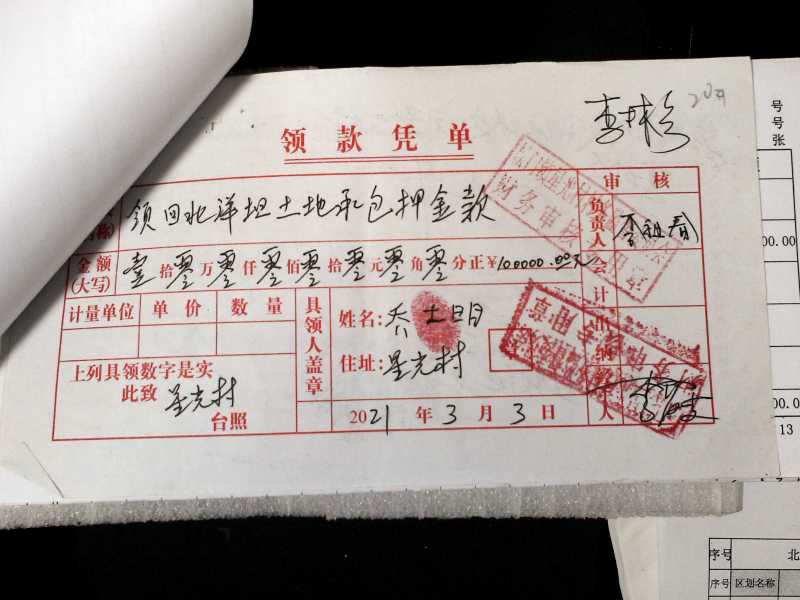 领款凭单
领回北洋坦土地承包押金款
审核
金额(大写) 壹拾零万零仟零佰零拾零元零角零分正¥100000.00元
负责人 李祖春
会计
计量单位 单价 数量
具领人盖章
姓名:乔土明
出纳
住址:星光村
上列具领数字是实
此致 星光村
台照
2021年3月3日
人
号
号
张
00.00
00.0
13
序号 北
序号 区划名称